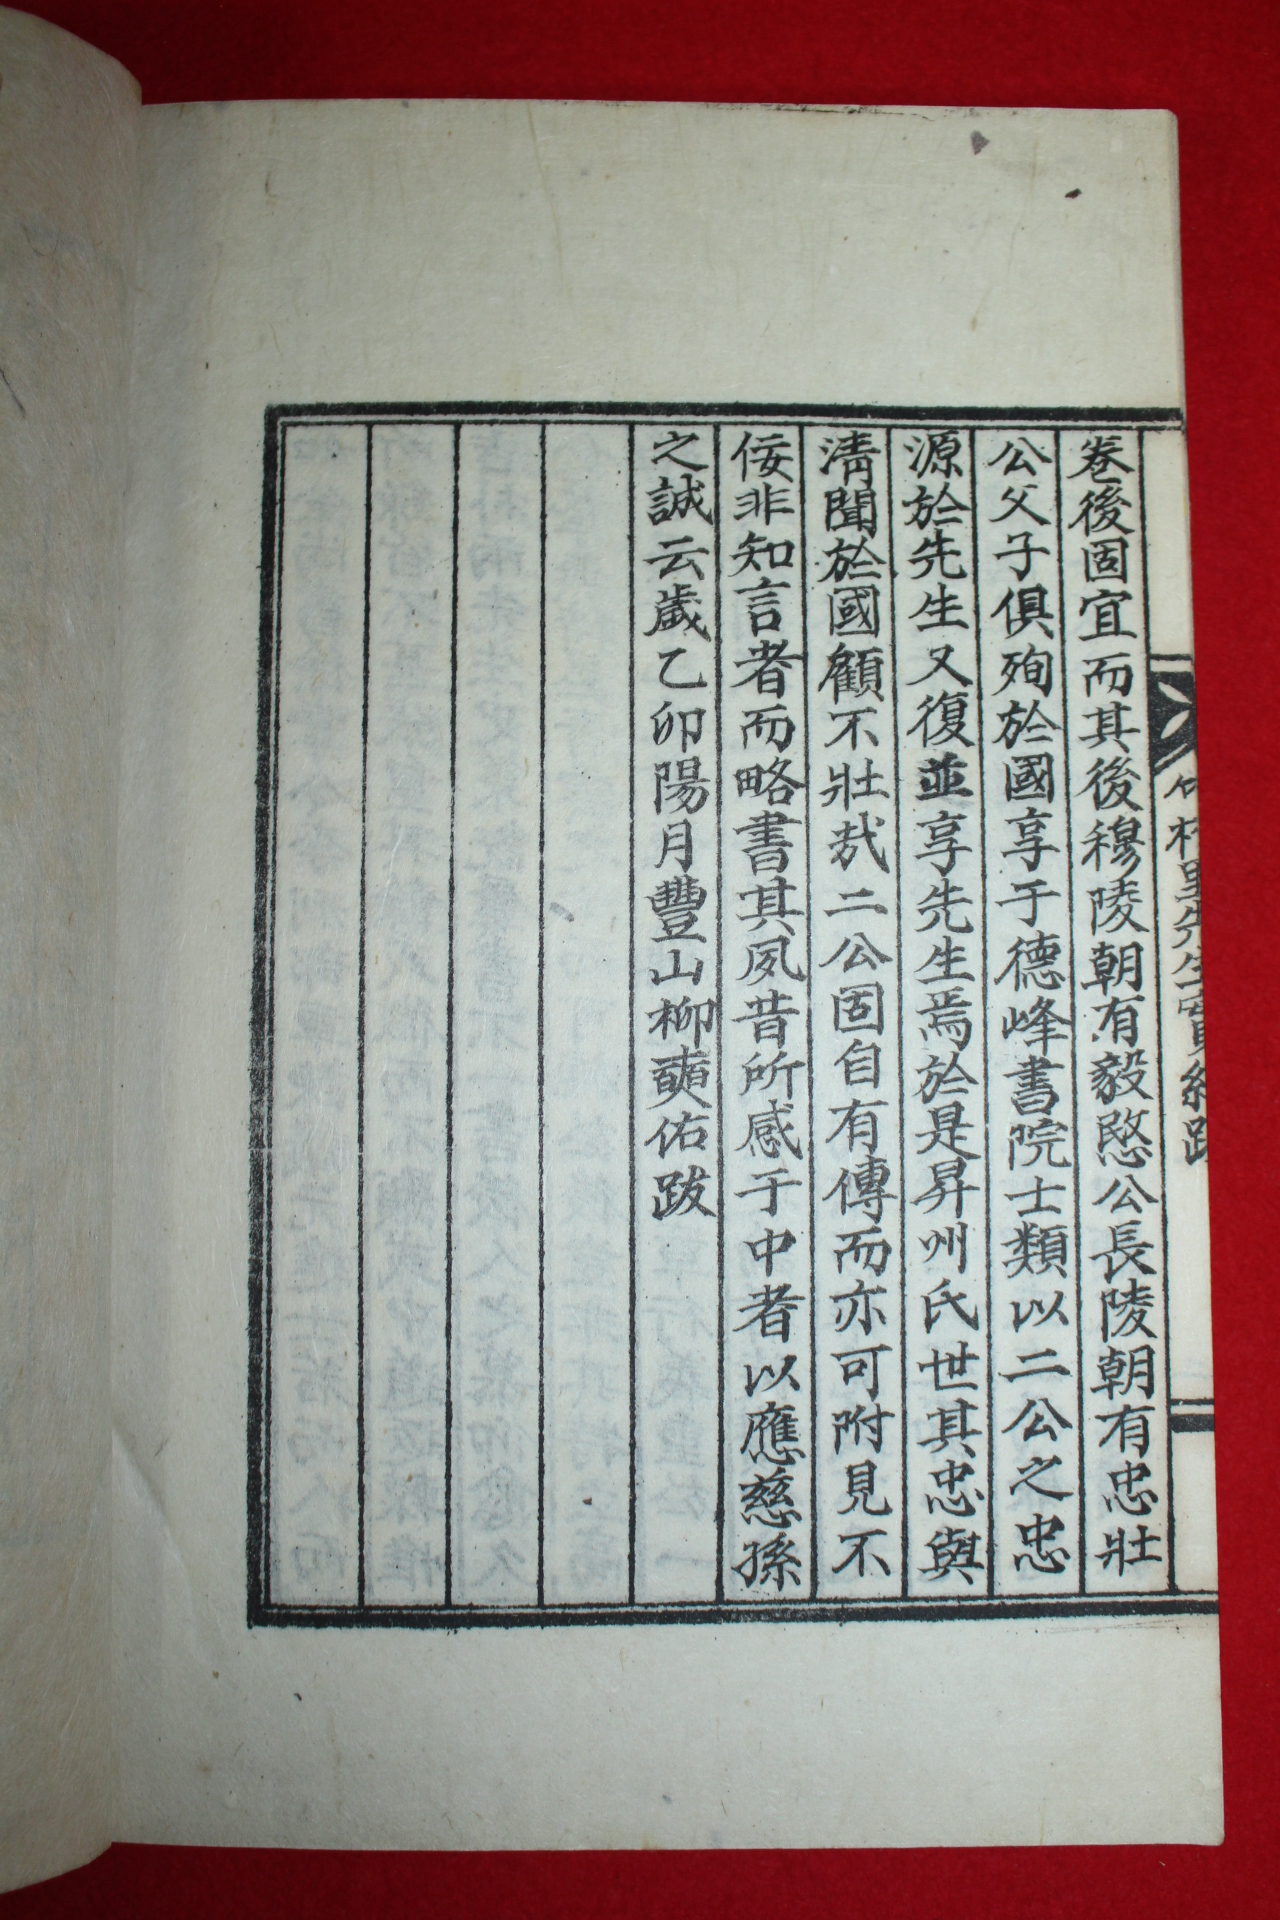 卷後固宜而其後穆陵朝有毅愍公長陵朝有忠壯
公父子俱殉於國享于德峰書院士類以二公之忠
源於先生又復並享先生焉於是昇州氏世其忠與
淸聞於國顧不壯哉二公固自有傳而亦可附見不
佞非知言者而略書其夙昔所感于中者以應慈孫
之誠云歲乙卯陽月豐山柳奭佑跋
村里先生實紀跋